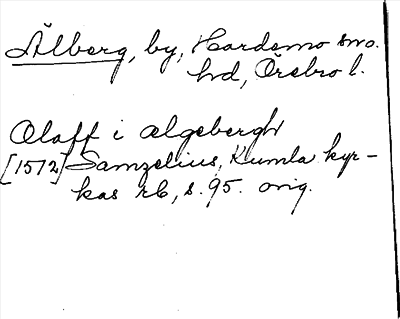 Älberg, by, Hardemo sn o.
hd, Örebro l.
Olaff i ælgebergh
[1572] Samzelius, Kumla kyr-
kas rb, s. 95. orig.